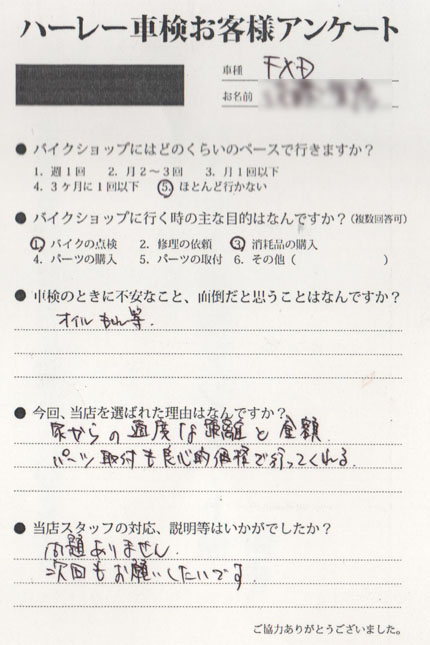 ハーレー車検お客様アンケート
車種 FXD
お名前
● バイクショップにはどのくらいのペースで行きますか？
1. 週1回 2. 月2～3回 3. 月1回以下
4. 3ヶ月に1回以下 5. ほとんど行かない
● バイクショップに行く時の主な目的はなんですか？（複数回答可）
1. バイクの点検 2. 修理の依頼 3. 消耗品の購入
4. パーツの購入 5. パーツの取付 6. その他（ ）
● 車検のときに不安なこと、面倒だと思うことはなんですか？
オイルもれ等.
● 今回、当店を選ばれた理由はなんですか？
家からの適度な距離と金額
パーツ取付も良心的価格で行ってくれる.
● 当店スタッフの対応、説明等はいかがでしたか？
問題ありません.
次回もお願いしたいです.
ご協力ありがとうございました。